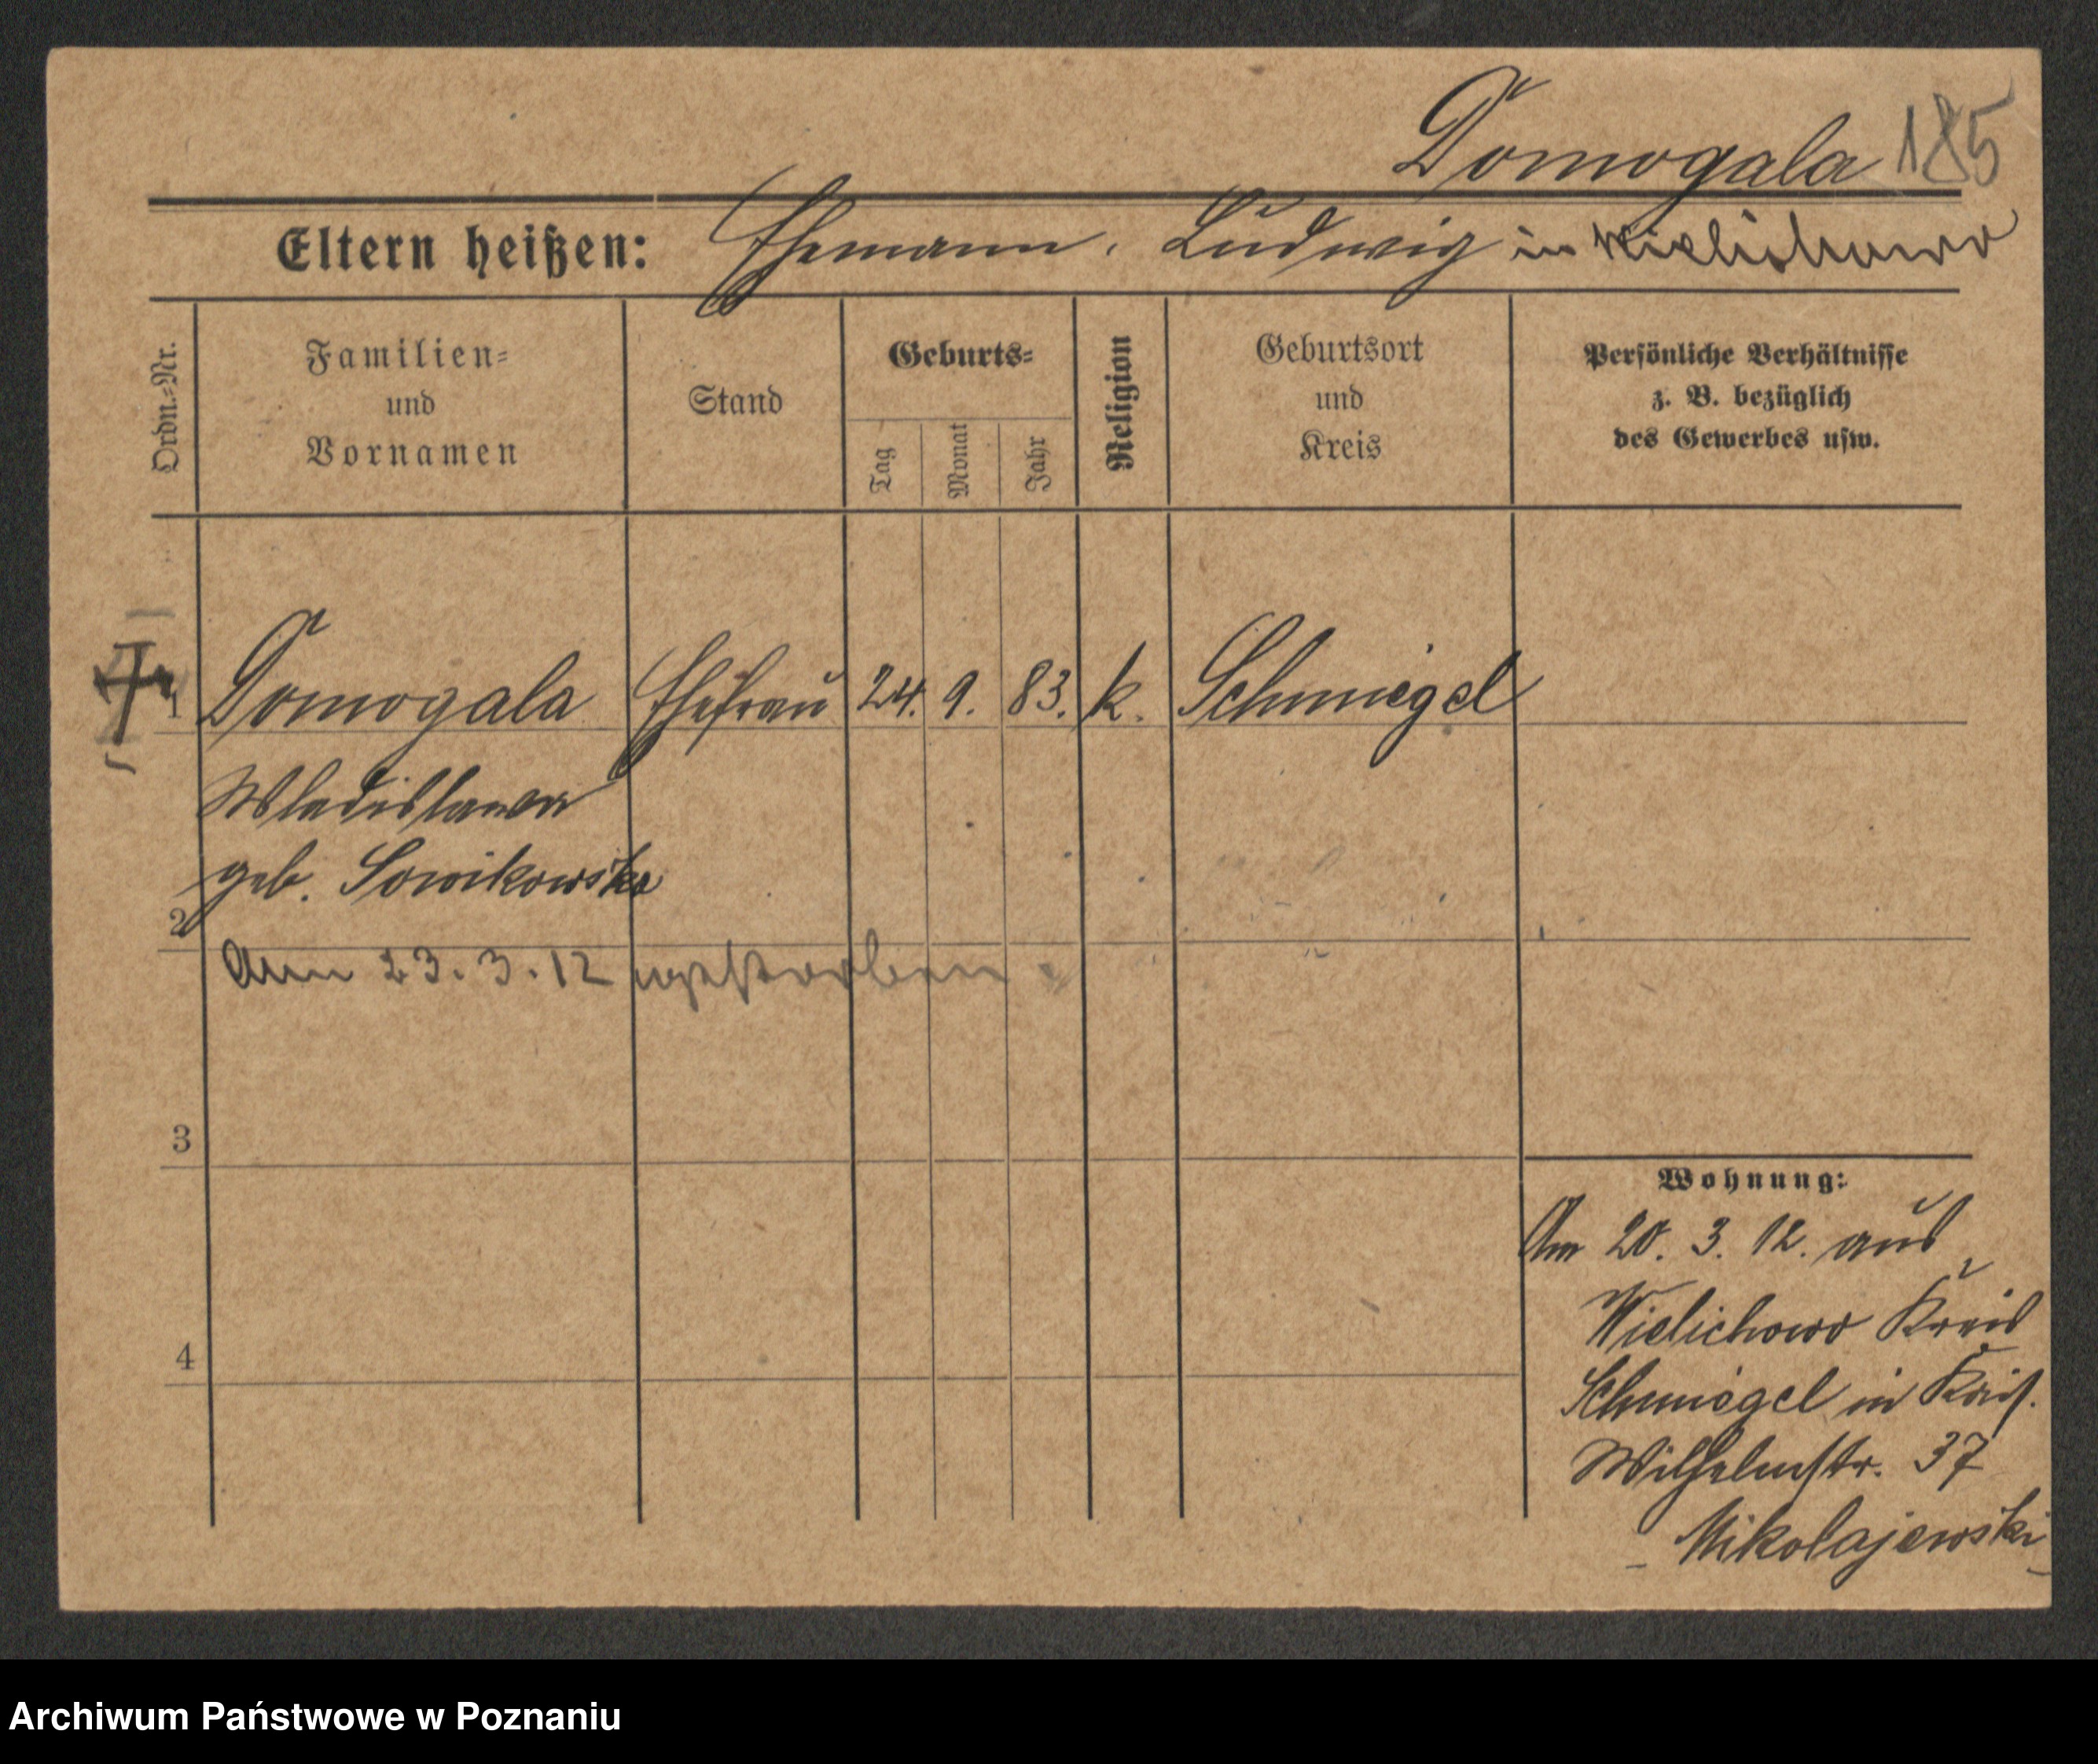 Domogala 185
Eltern heißen: Ehemann, Ludwig in Wielichowo
Ordn.=Nr.
Familien=
und
Vornamen
Stand
Geburts=
Tag
Monat
Jahr
Religion
Geburtsort
und
Kreis
Persönliche Verhältnisse
z. B. bezüglich
des Gewerbes usw.
1 Domogala Ehefrau 24. 9. 83. k. Schmiegel
Wladislawa
geb. Sowikowska
2
Am 23.3.12 gestorben.
3
4
Wohnung:
Am 20. 3. 12. aus
Wielichowo Kreis
Schmiegel in
Wilhelmstr. 37
- Mikolajewski -
Archiwum Państwowe w Poznaniu